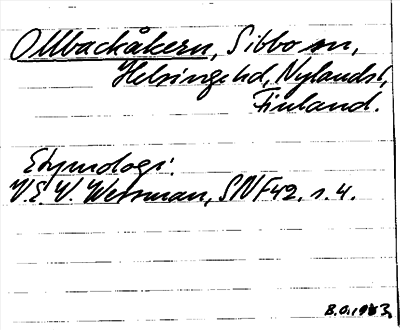 Ollbackåkern, Sibbo sn,
Helsinge hd, Nylands l,
Finland.
Etymologi:
V.E.V. Wessman, SNF 42, s. 4.
B.O. 1983